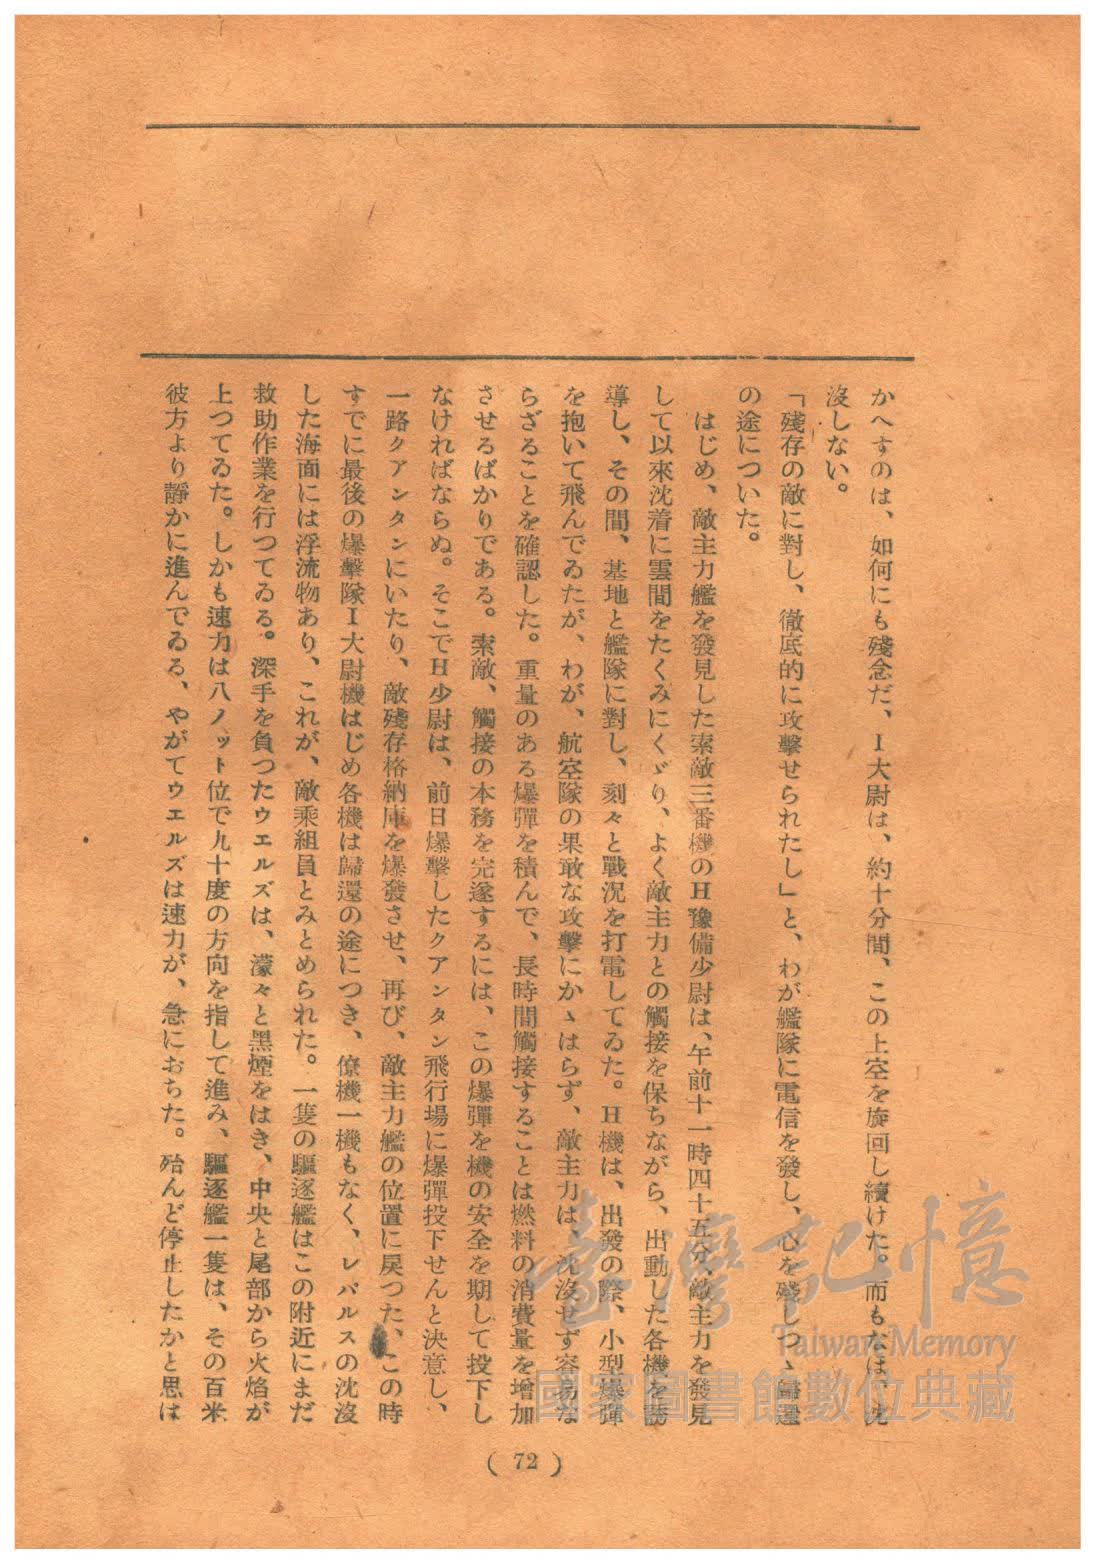 かへすのは、如何にも殘念だ、I大尉は、約十分間、この上空を旋回し續けた。而もなほ、沈
沒しない。
「殘存の敵に對し、徹底的に攻擊せられたし」と、わが艦隊に電信を發し、心を殘しつゝ歸還
の途についた。
はじめ、敵主力艦を發見した索敵三番機のH豫備少尉は、午前十一時四十五分、敵主力を發見
して以來沈着に雲間をたくみにくゞり、よく敵主力との觸接を保ちながら、出動した各機を誘
導し、その間、基地と艦隊に對し、刻々と戰況を打電してゐた。H機は、出發の際、小型爆彈
を抱いて飛んでゐたが、わが、航空隊の果敢な攻擊にかゝはらず、敵主力は、沈沒せず容易な
らざることを確認した。重量のある爆彈を積んで、長時間觸接することは燃料の消費量を增加
させるばかりである。索敵、觸接の本務を完遂するには、この爆彈を機の安全を期して投下し
なければならぬ。そこでH少尉は、前日爆擊したクアンタン飛行場に爆彈投下せんと決意し、
一路クアンタンにいたり、敵殘存格納庫を爆發させ、再び、敵主力艦の位置に戻つた、この時
すでに最後の爆擊隊I大尉機はじめ各機は歸還の途につき、僚機一機もなく、レパルスの沈沒
した海面には浮流物あり、これが、敵乘組員とみとめられた。一隻の驅逐艦はこの附近にまだ
救助作業を行つてゐる。深手を負つたウエルズは、濛々と黑煙をはき、中央と尾部から火焰が
上つてゐた。しかも速力は八ノット位で九十度の方向を指して進み、驅逐艦一隻は、その百米
彼方より靜かに進んでゐる、やがてウエルズは速力が、急におちた。殆んど停止したかと思は
( 72 )
臺灣記憶
Taiwan Memory
國家圖書館數位典藏